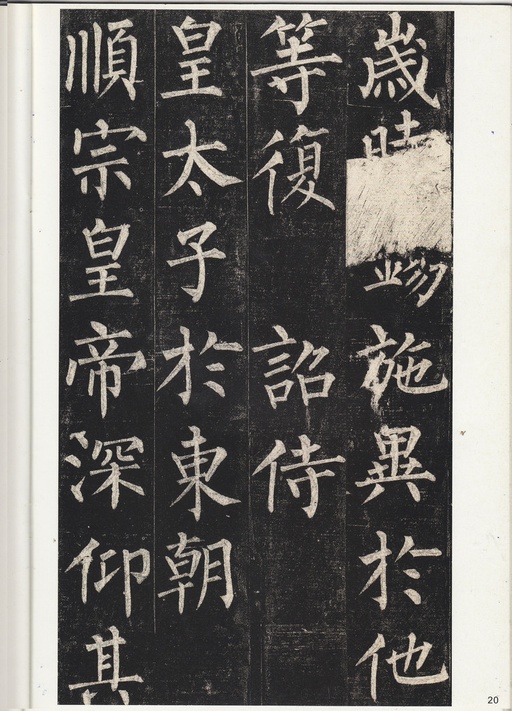 歲時錫施異於他
等復 詔侍
皇太子於東朝
順宗皇帝深仰其
20